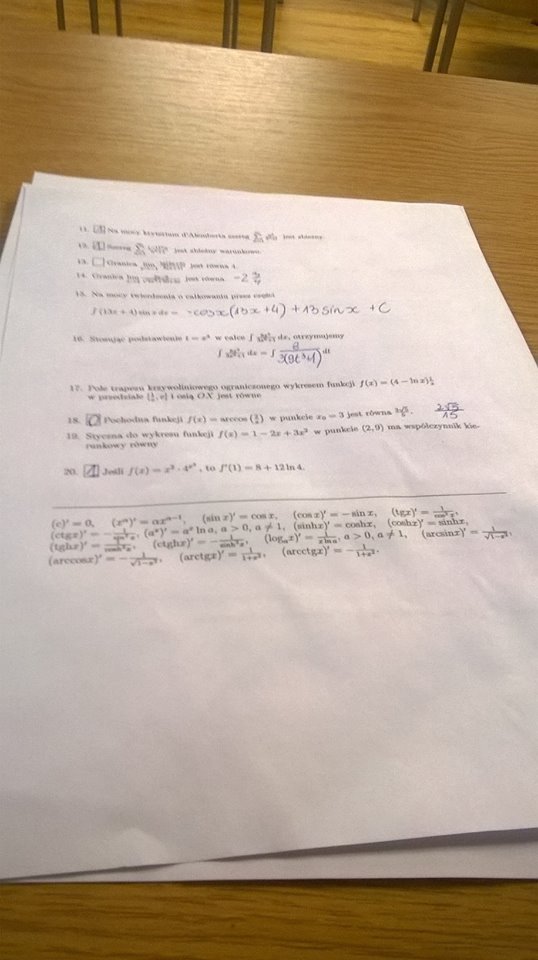 11. 1 Na mocy kryterium d'Alemberta szereg jest zbieżny.
12. 1 Szereg jest zbieżny warunkowo.
13. Granica jest równa 4.
14. Granica jest równa -2
15. Na mocy twierdzenia o całkowaniu przez części
∫(13x + 4) sin x dx = -cosx(13x+4) + 13 sin x + C
16. Stosując podstawienie t = x⁴ w całce ∫ dx, otrzymujemy
∫ dx = ∫ dt
17. Pole trapezu krzywoliniowego ograniczonego wykresem funkcji f(x) = (4 − ln x)
w przedziale i osią OX jest równe
18. 0 Pochodna funkcji f(x) = arccos (2/x) w punkcie x₀ = 3 jest równa 2√5/15
19. Styczna do wykresu funkcji f(x) = 1 − 2x + 3x² w punkcie (2, 9) ma współczynnik kie-
runkowy równy
20. 1 Jeśli to f'(1) = 8 + 12 ln 4.
(c)' = 0, (xᵅ)' = αxᵅ⁻¹, (sin x)' = cos x, (cos x)' = − sin x, (tgx)' = 1/cos²x,
(ctgx)' = −1/sin²x, (aˣ)' = aˣ ln a, a > 0, a ≠ 1, (sinhx)' = coshx, (coshx)' = sinhx,
(tghx)' = 1/cosh²x, (ctghx)' = −1/sinh²x, (logₐx)' = 1/(x ln a), a > 0, a ≠ 1, (arcsinx)' = 1/√(1−x²),
(arccosx)' = −1/√(1−x²), (arctgx)' = 1/(1+x²), (arcctgx)' = −1/(1+x²).